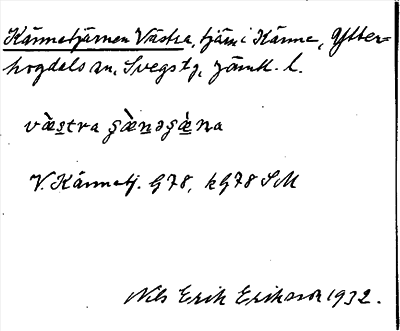 Kännetjärnen Västra, tjärn i Känne, Ytter=
hogdals sn, Svegs tg, Jämtl. l.
västra ʂæ̀nəʂæ̀na
V. Kännetj. G78, kG78 SM
Nils Erik Eriksson 1932.